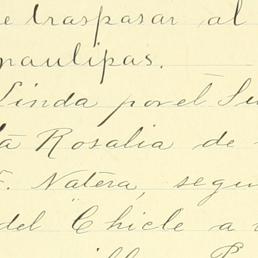 e traspasar al
naulipas.
Linda por el Su
ta Rosalia de
F. Natera, segu
del "Chicle a